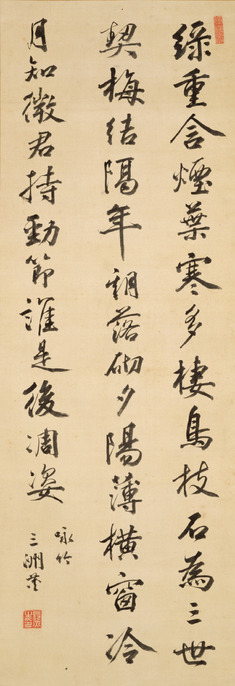 綠重含煙葉寒多棲鳥枝石為三世
契梅結隔年期落砌夕陽薄橫窗冷
月知微君持勁節誰是後凋姿
詠竹
三洲